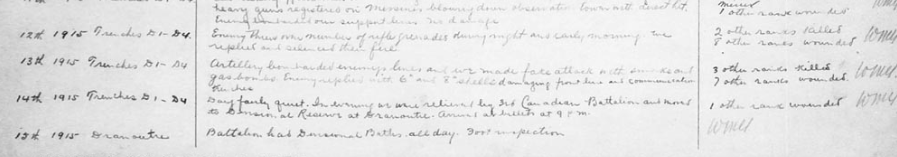 heavy guns registered on Messines blowing down observation tower with direct hit.
Enemy bombarded our support lines. No damage
1 other rank wounded
12th 1915 Trenches D1-D4. Enemy threw a number of rifle grenades during night and early morning. We 2 other ranks killed
replied and silenced their fire 8 other ranks wounded
13th 1915 Trenches D1-D4 Artillery bombarded enemys lines and we made fake attack with smoke and 3 other ranks killed
gas bombs. Enemy replied with 6" and 8" shells damaging front lines and communication 7 other ranks wounded.
trenches
14th 1915 Trenches D1-D4 Day fairly quiet. In evening we were relieved by 3rd Canadian Battalion and moved 1 other rank wounded
to Divisional Reserve at Dranoutre. Arrived at billets at 9 P.M.
15th 1915 Dranoutre Battalion had Divisional Baths all day. Foot inspection